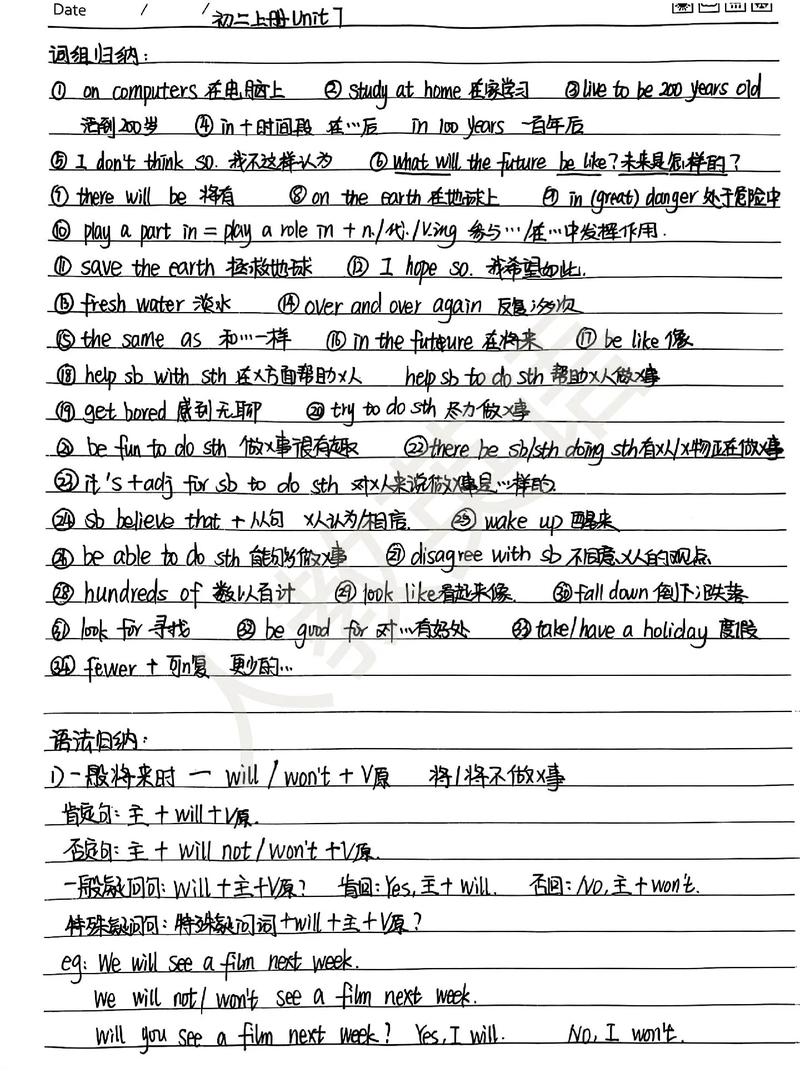 Date / /
初二上册Unit 7
词组归纳：
① on computers 在电脑上 ② study at home 在家学习 ③ live to be 200 years old
活到200岁 ④ in + 时间段 在…后 in 100 years 一百年后
⑤ I don't think so. 我不这样认为 ⑥ what will the future be like? 未来是怎样的？
⑦ there will be 将有 ⑧ on the earth 在地球上 ⑨ in (great) danger 处于危险中
⑩ play a part in = play a role in + n./代./Ving 参与…/在…中发挥作用.
⑪ save the earth 拯救地球 ⑫ I hope so. 我希望如此.
⑬ fresh water 淡水 ⑭ over and over again 反复多次
⑮ the same as 和…一样 ⑯ in the future 在将来 ⑰ be like 像
⑱ help sb with sth 在x方面帮助x人 help sb to do sth 帮助x人做x事
⑲ get bored 感到无聊 ⑳ try to do sth 尽力做x事
㉑ be fun to do sth 做x事很有趣 ㉒ there be sb/sth doing sth 有x人/x物正在做x事
㉓ it's + adj for sb to do sth 对x人来说做x事是…样的.
㉔ sb believe that + 从句 x人认为/相信. ㉕ wake up 醒来
㉖ be able to do sth 能够做x事 ㉗ disagree with sb 不同意x人的观点
㉘ hundreds of 数以百计 ㉙ look like 看起来像. ㉚ fall down 倒下；跌落
㉛ look for 寻找 ㉜ be good for 对…有好处 ㉝ take/have a holiday 度假
㉞ fewer + 可n复 更少的…
语法归纳：
1) 一般将来时 — will / won't + V原 将/将不做x事
肯定句：主 + will + V原.
否定句：主 + will not / won't + V原.
一般疑问句：Will + 主 + V原？ 肯回：Yes, 主 + will. 否回：No, 主 + won't.
特殊疑问句：特殊疑问词 + will + 主 + V原？
eg: We will see a film next week.
We will not / won't see a film next week.
Will you see a film next week? Yes, I will. No, I won't.
人教英语